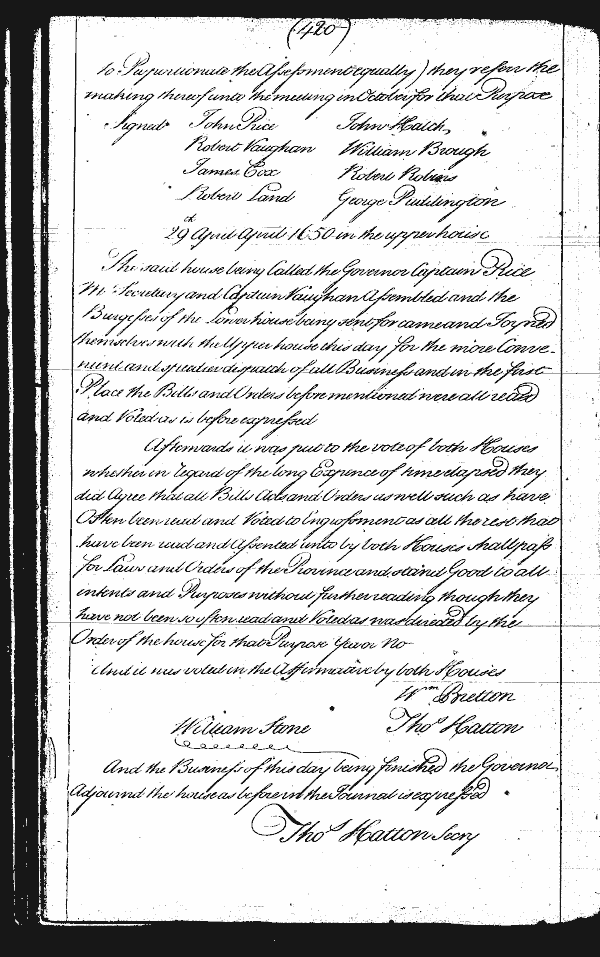 (420)
to Proportionate the Assessment equally) they referr the
making thereof unto the meeting in October for that Purpose
Signed John Price John Hatch
Robert Vaughan William Brough
James Cox Robert Robins
Robert Land George Puddington
29 April April 1650 in the upper house
The said house being Called the Governor Captain Price
Mr Secretary and Captain Vaughan Assembled and the
Burgesses of the Lower house being sent for came and Joyned
themselves with the Upper house this day for the more Conve-
nient and speedier dispatch of all Business and in the first
Place the Bills and Orders before mentioned were all read
and Voted as is before expressed
Afterwards it was put to the vote of both Houses
whether in regard of the long Expence of time elapsed they
did Agree that all Bills Acts and Orders as well such as have
Often been read and Voted to Engrossment as all the rest that
have been read and Assented unto by both Houses shall pass
for Laws and Orders of the Province and stand Good to all
intents and Purposes without further reading though they
have not been so often read and Voted as was directed by the
Order of the house for that Purpose Yea or No
And it was voted in the Affirmative by both Houses
Wm Bretton
William Stone Thos Hatton
And the Business of this day being finished the Governor
Adjournd the house as before in the Journal is expressed
Thos Hatton Secry